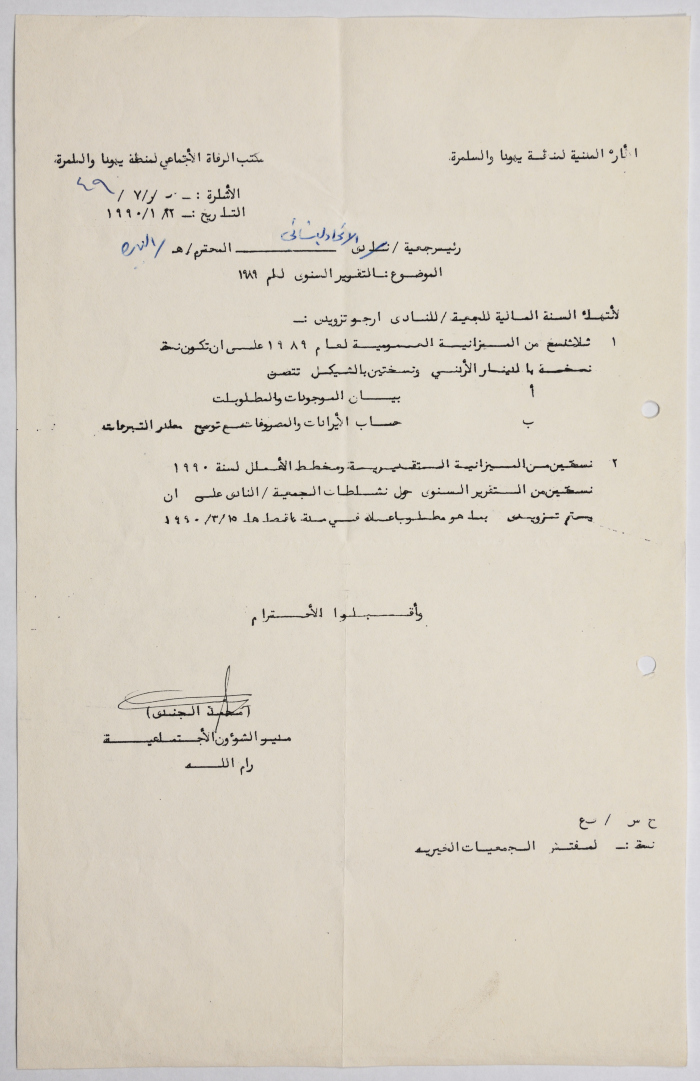 ادارة المدنية لمنطقة يهودا والسامرة
مكتب الرفاة الأجتماعي لمنطقة يهودا والسامرة
الأشارة :ـ / ٧ / ٤٩
التاريخ :ـ ٢٢/ ١/ ١٩٩٠
رئيس جمعية / نادى الاتحاد النسائي المحترم / هـ / البيرة
الموضوع :ـ التقرير السنوى لعام ١٩٨٩
لأنتهاء السنة المالية للجمعية / للنادى ارجو تزويدى :ـ
١ ثلاث نسخ من الميزانية العمومية لعام ١٩٨٩ على ان تكون
نسخة بالدينار الأردني ونسختين بالشيكل تتضمن
أ بيان الموجودات والمطلوبات
ب حساب الأيرادات والمصروفات مع توضيح مصادر التبرعات
٢ نسختين من الميزانية التقديرية ومخطط الأعمال لسنة ١٩٩٠
نسختين من التقرير السنوى حول نشاطات الجمعية / النادى على ان
يتم تزويدى بما هو مطلوب اعلاه في مدة اقصاها ١٥/ ٣/ ١٩٩٠
وأقبلوا الأحترام
(محمد الجندى)
مدير الشؤون الأجتماعية
رام الله
نسخة :ـ لمفتش الجمعيات الخيرية